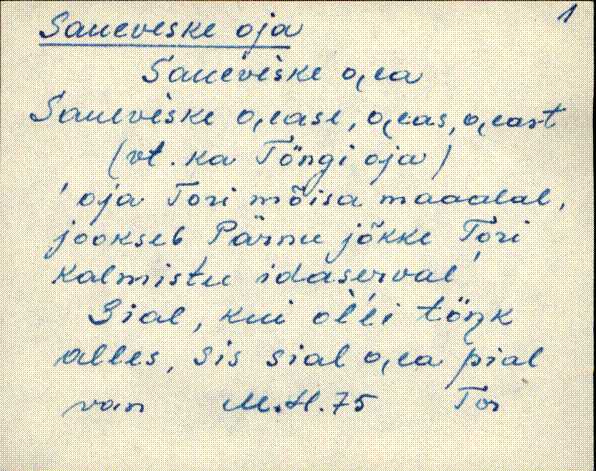 1
Saueveske oja
Saueveske o̭ea
Saueveske o̭ease, o̭eas, o̭east
(vt. ka Töngi oja)
'oja Tori mõisa maadel,
jookseb Pärnu jõkke Tori
kalmistu idaserval'
Sial, kui olli töŋk
alles, sis sial o̭ea pial
van M.H.75 Tor